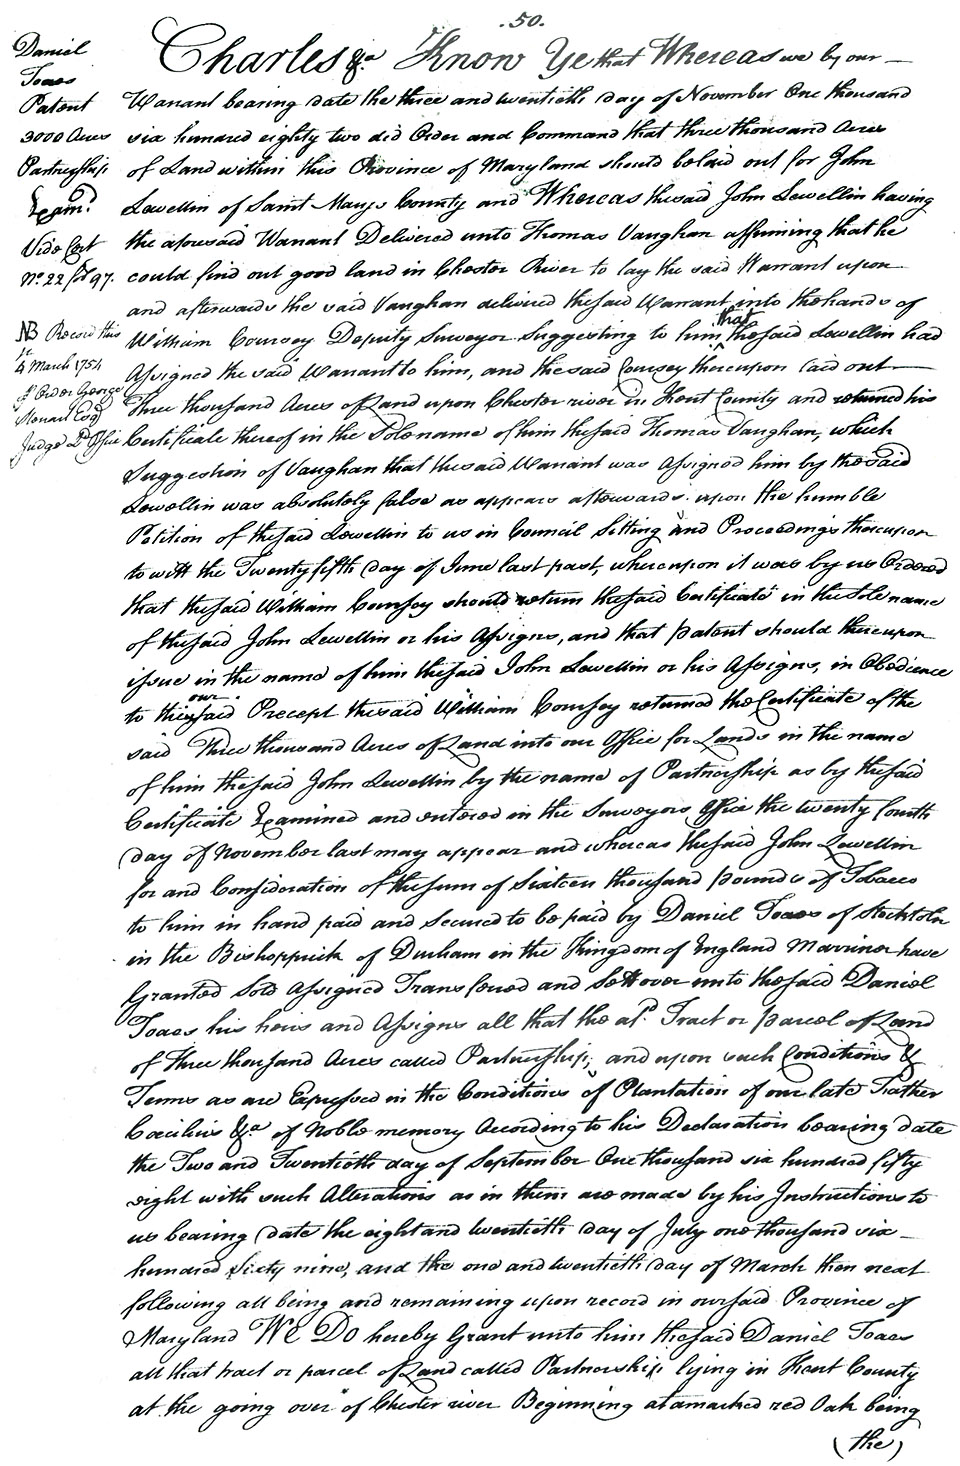 .50.
Daniel
Toaes
Patent
3000 Acres
Partnership
Exam.d
Vide Cert
No. 22 fol 97.
NB Record this
4th March 1754
pr Order George
Steuart Esqr
Judge Ld Office
Charles &a Know Ye that Whereas we by our
Warrant bearing date the three and twentieth day of November One thousand
six hundred eighty two did Order and Command that three thousand Acres
of Land within this Province of Maryland should be laid out for John
Lewellin of Saint Marys County and Whereas the said John Lewellin having
the aforesaid Warrant Delivered unto Thomas Vaughan affirming that he
could find out good land in Chester River to lay the said Warrant upon
and afterwards the said Vaughan delivered the said Warrant into the hands of
William Coursey Deputy Surveyor Suggesting to him that the said Lewellin had
Assigned the said Warrant to him, and the said Coursey thereupon laid out
Three thousand Acres of Land upon Chester river in Kent County and returned his
Certificate thereof in the Sole name of him the said Thomas Vaughan, which
Suggestion of Vaughan that the said Warrant was Assigned him by the said
Lewellin was absolutely false as appears afterwards upon the humble
Petition of the said Lewellin to us in Council Sitting and Proceedings thereupon
to witt the Twenty fifth day of June last past, whereupon it was by us Ordered
that the said William Coursey should return the said Certificate in the Sole name
of the said John Lewellin or his Assigns, and that patent should thereupon
issue in the name of him the said John Lewellin or his Assigns, in Obedience
to our said Precept the said William Coursey returned the Certificate of the
said Three thousand Acres of Land into our Office for Lands in the name
of him the said John Lewellin by the name of Partnership as by the said
Certificate Examined and entered in the Surveyors Office the twenty fourth
day of November last may appear and whereas the said John Lewellin
for and Consideration of the sum of Sixteen thousand pounds of Tobacco
to him in hand paid and secured to be paid by Daniel Toaes of Stockton
in the Bishoprick of Durham in the Kingdom of England Marriner have
Granted Sold Assigned Transferred and Sett over unto the said Daniel
Toaes his heirs and Assigns all that the afd. Tract or parcel of Land
of three thousand Acres called Partnership; and upon such Conditions &
Terms as are Expressed in the Conditions of Plantation of our late Father
Cæcilius &a of Noble memory According to his Declaration bearing date
the Two and Twentieth day of September One thousand six hundred fifty
eight with such Alterations as in them are made by his Instructions to
us bearing date the eight and twentieth day of July one thousand six
hundred sixty nine, and the one and twentieth day of March then next
following all being and remaining upon record in our said Province of
Maryland We Do hereby Grant unto him the said Daniel Toaes
all that tract or parcel of Land called Partnership lying in Kent County
at the going over of Chester river Beginning at a marked red Oak being
(the)